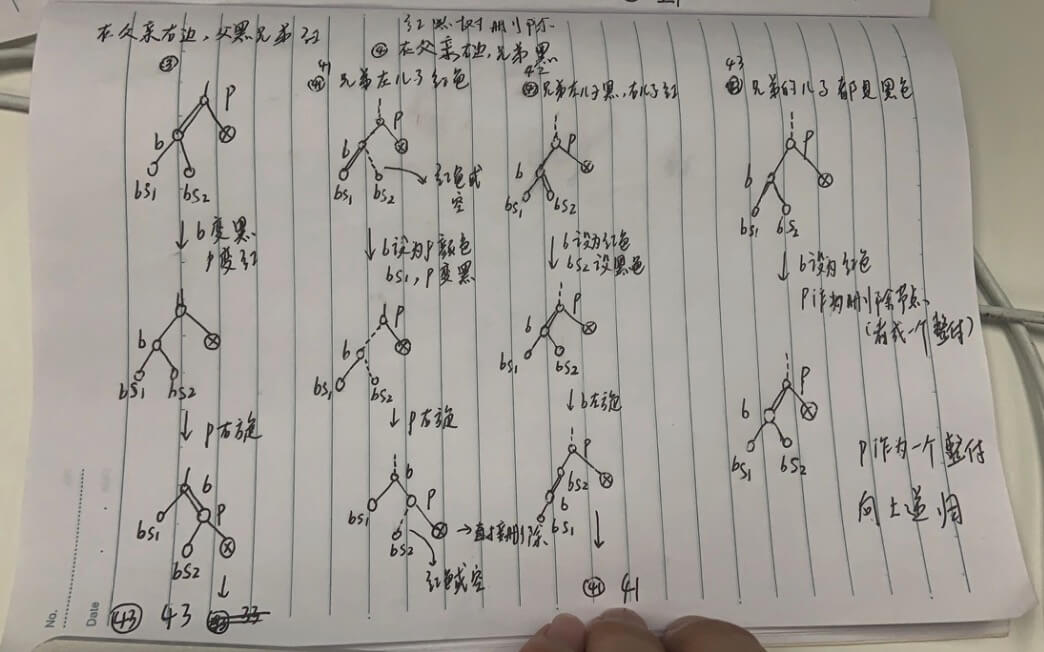 红黑树删除
在父亲右边，父黑兄弟红
③
p
b
bs₁
bs₂
↓ b变黑
p变红
b
bs₁
bs₂
↓ p右旋
b
p
bs₁
bs₂
↓
㊸ 43
④ 在父亲右边，兄弟黑
41
兄弟左儿子红色
p
b
bs₁
bs₂
红色或
空
↓ b设为p颜色
bs₁, p变黑
p
b
bs₁
bs₂
↓ p右旋
b
p
bs₁
bs₂
→直接删除
红色或空
42
兄弟左儿子黑，右儿子红
p
b
bs₁
bs₂
↓ b设为红色
bs₂设黑色
p
b
bs₁
bs₂
↓ b左旋
p
bs₂
b
bs₁
↓
㊶ 41
43
兄弟的儿子都是黑色
p
b
bs₁
bs₂
↓ b设为红色
P作为删除节点
(看成一个整体)
p
b
bs₁
bs₂
P作为一个整体
向上递归
No.
Date